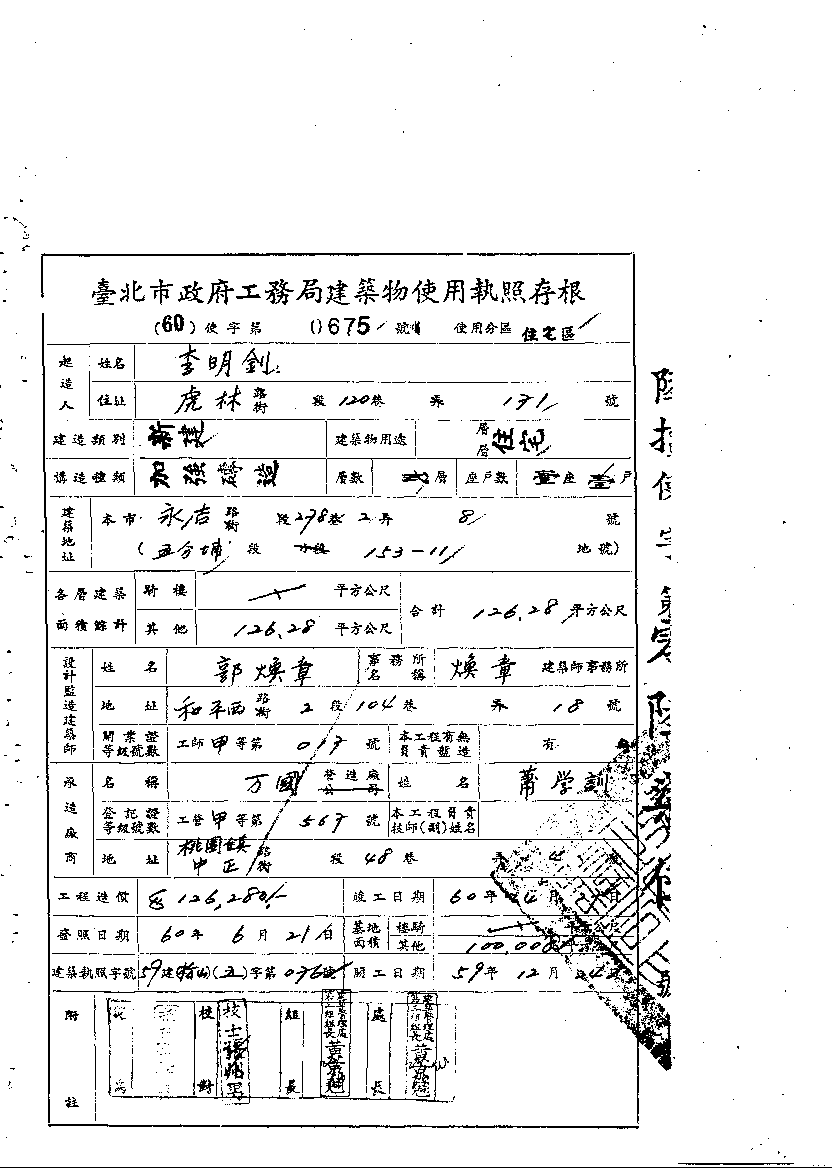 臺北市政府工務局建築物使用執照存根
(60) 使字第 0675 號 使用分區 住宅區
起造人 姓名 李明釗
住址 虎林 路街 段 120巷 弄 131 號
建造類別 新建 建築物用途 層層 住宅
構造種類 加強磚造 層數 貳層 座戶數 壹座 壹戶
建築地址 本市 永吉 路街 段 278巷 2弄 8 號
(五分埔 段 小段 153-11 地號)
各層建築面積餘計 騎樓 平方公尺 合計 126.28 平方公尺
其他 126.28 平方公尺
設計監造建築師 姓名 郭煥章 事務所名稱 煥章 建築師事務所
地址 和平西 路街 2段 104巷 弄 18號
開業證等級號數 工師 甲等第 號 本工程有無負責監造 有
承造廠商 名稱 万國 營造廠公司 姓名 蕭学訓
登記證等級號數 工營 甲等第 567 號 本工程負責技師(副)姓名
地址 桃園鎮中正 路街 段 48巷 弄 號
工程造價 126,280/- 竣工日期 60年 4月 日
發照日期 60年 6月 21日 基地面積 樓騎 平方公尺
其他 100.00
建築執照字號 59建 字第 號 開工日期 59年 12月 日
附註 校對 技士 組長 處長